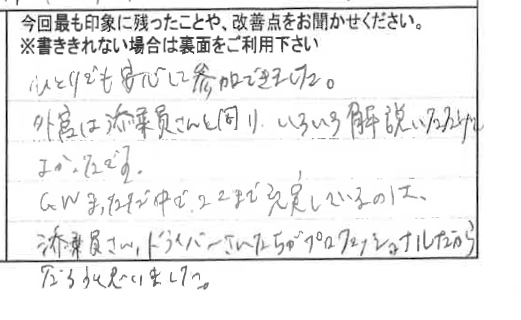 今回最も印象に残ったことや、改善点をお聞かせください。
※書ききれない場合は裏面をご利用下さい
ひとりでも安心して参加できました。
外宮は添乗員さんと回り、いろいろ解説いただけて
よかったです。
GWまっただ中で、ここまで充実しているのは、
添乗員さん、ドライバーさんたちがプロフェッショナルだから
だろうと思いました。